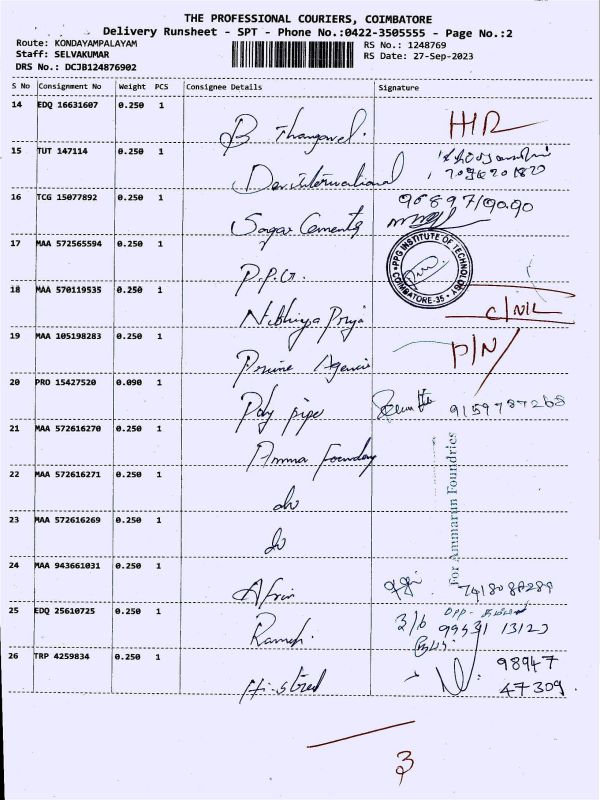 THE PROFESSIONAL COURIERS, COIMBATORE
Delivery Runsheet - SPT - Phone No.:0422-3505555 - Page No.:2
Route: KONDAYAMPALAYAM
RS No.: 1248769
Staff: SELVAKUMAR
RS Date: 27-Sep-2023
DRS No.: DCJB124876902
S No Consignment No Weight PCS Consignee Details Signature
14 EDQ 16631607 0.250 1 B. Thangavel.
15 TUT 147114 0.250 1 Dev International
16 TCG 15077892 0.250 1 Sagar Cements
17 MAA 572565594 0.250 1 P.P.G.
PPG INSTITUTE OF TECHNOLOGY
COIMBATORE-35
18 MAA 570119535 0.250 1 Nibhiya Priya
19 MAA 105198283 0.250 1 Prime Agencie P/N
20 PRO 15427520 0.090 1 Poly pipe 9159787268
21 MAA 572616270 0.250 1 Amma Foundry
For Ammarun Foundries
22 MAA 572616271 0.250 1 do
23 MAA 572616269 0.250 1 do
24 MAA 943661031 0.250 1 Afrin
25 EDQ 25610725 0.250 1 Ramesh.
26 TRP 4259834 0.250 1 98947
47309.
3